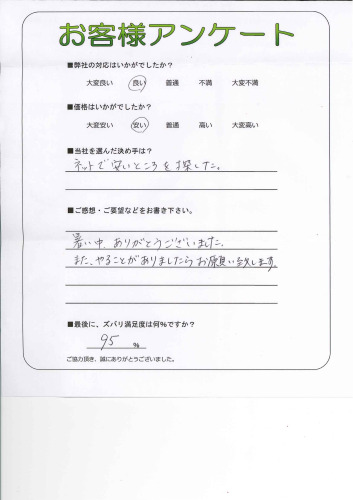 お客様アンケート
■弊社の対応はいかがでしたか？
大変良い 良い 普通 不満 大変不満
■価格はいかがでしたか？
大変安い 安い 普通 高い 大変高い
■当社を選んだ決め手は？
ネットで安いところを探した。
■ご感想・ご要望などをお書き下さい。
暑い中、ありがとうございました。
また、やることがありましたらお願い致します。
■最後に、ズバリ満足度は何%ですか？
95 %
ご協力頂き、誠にありがとうございました。